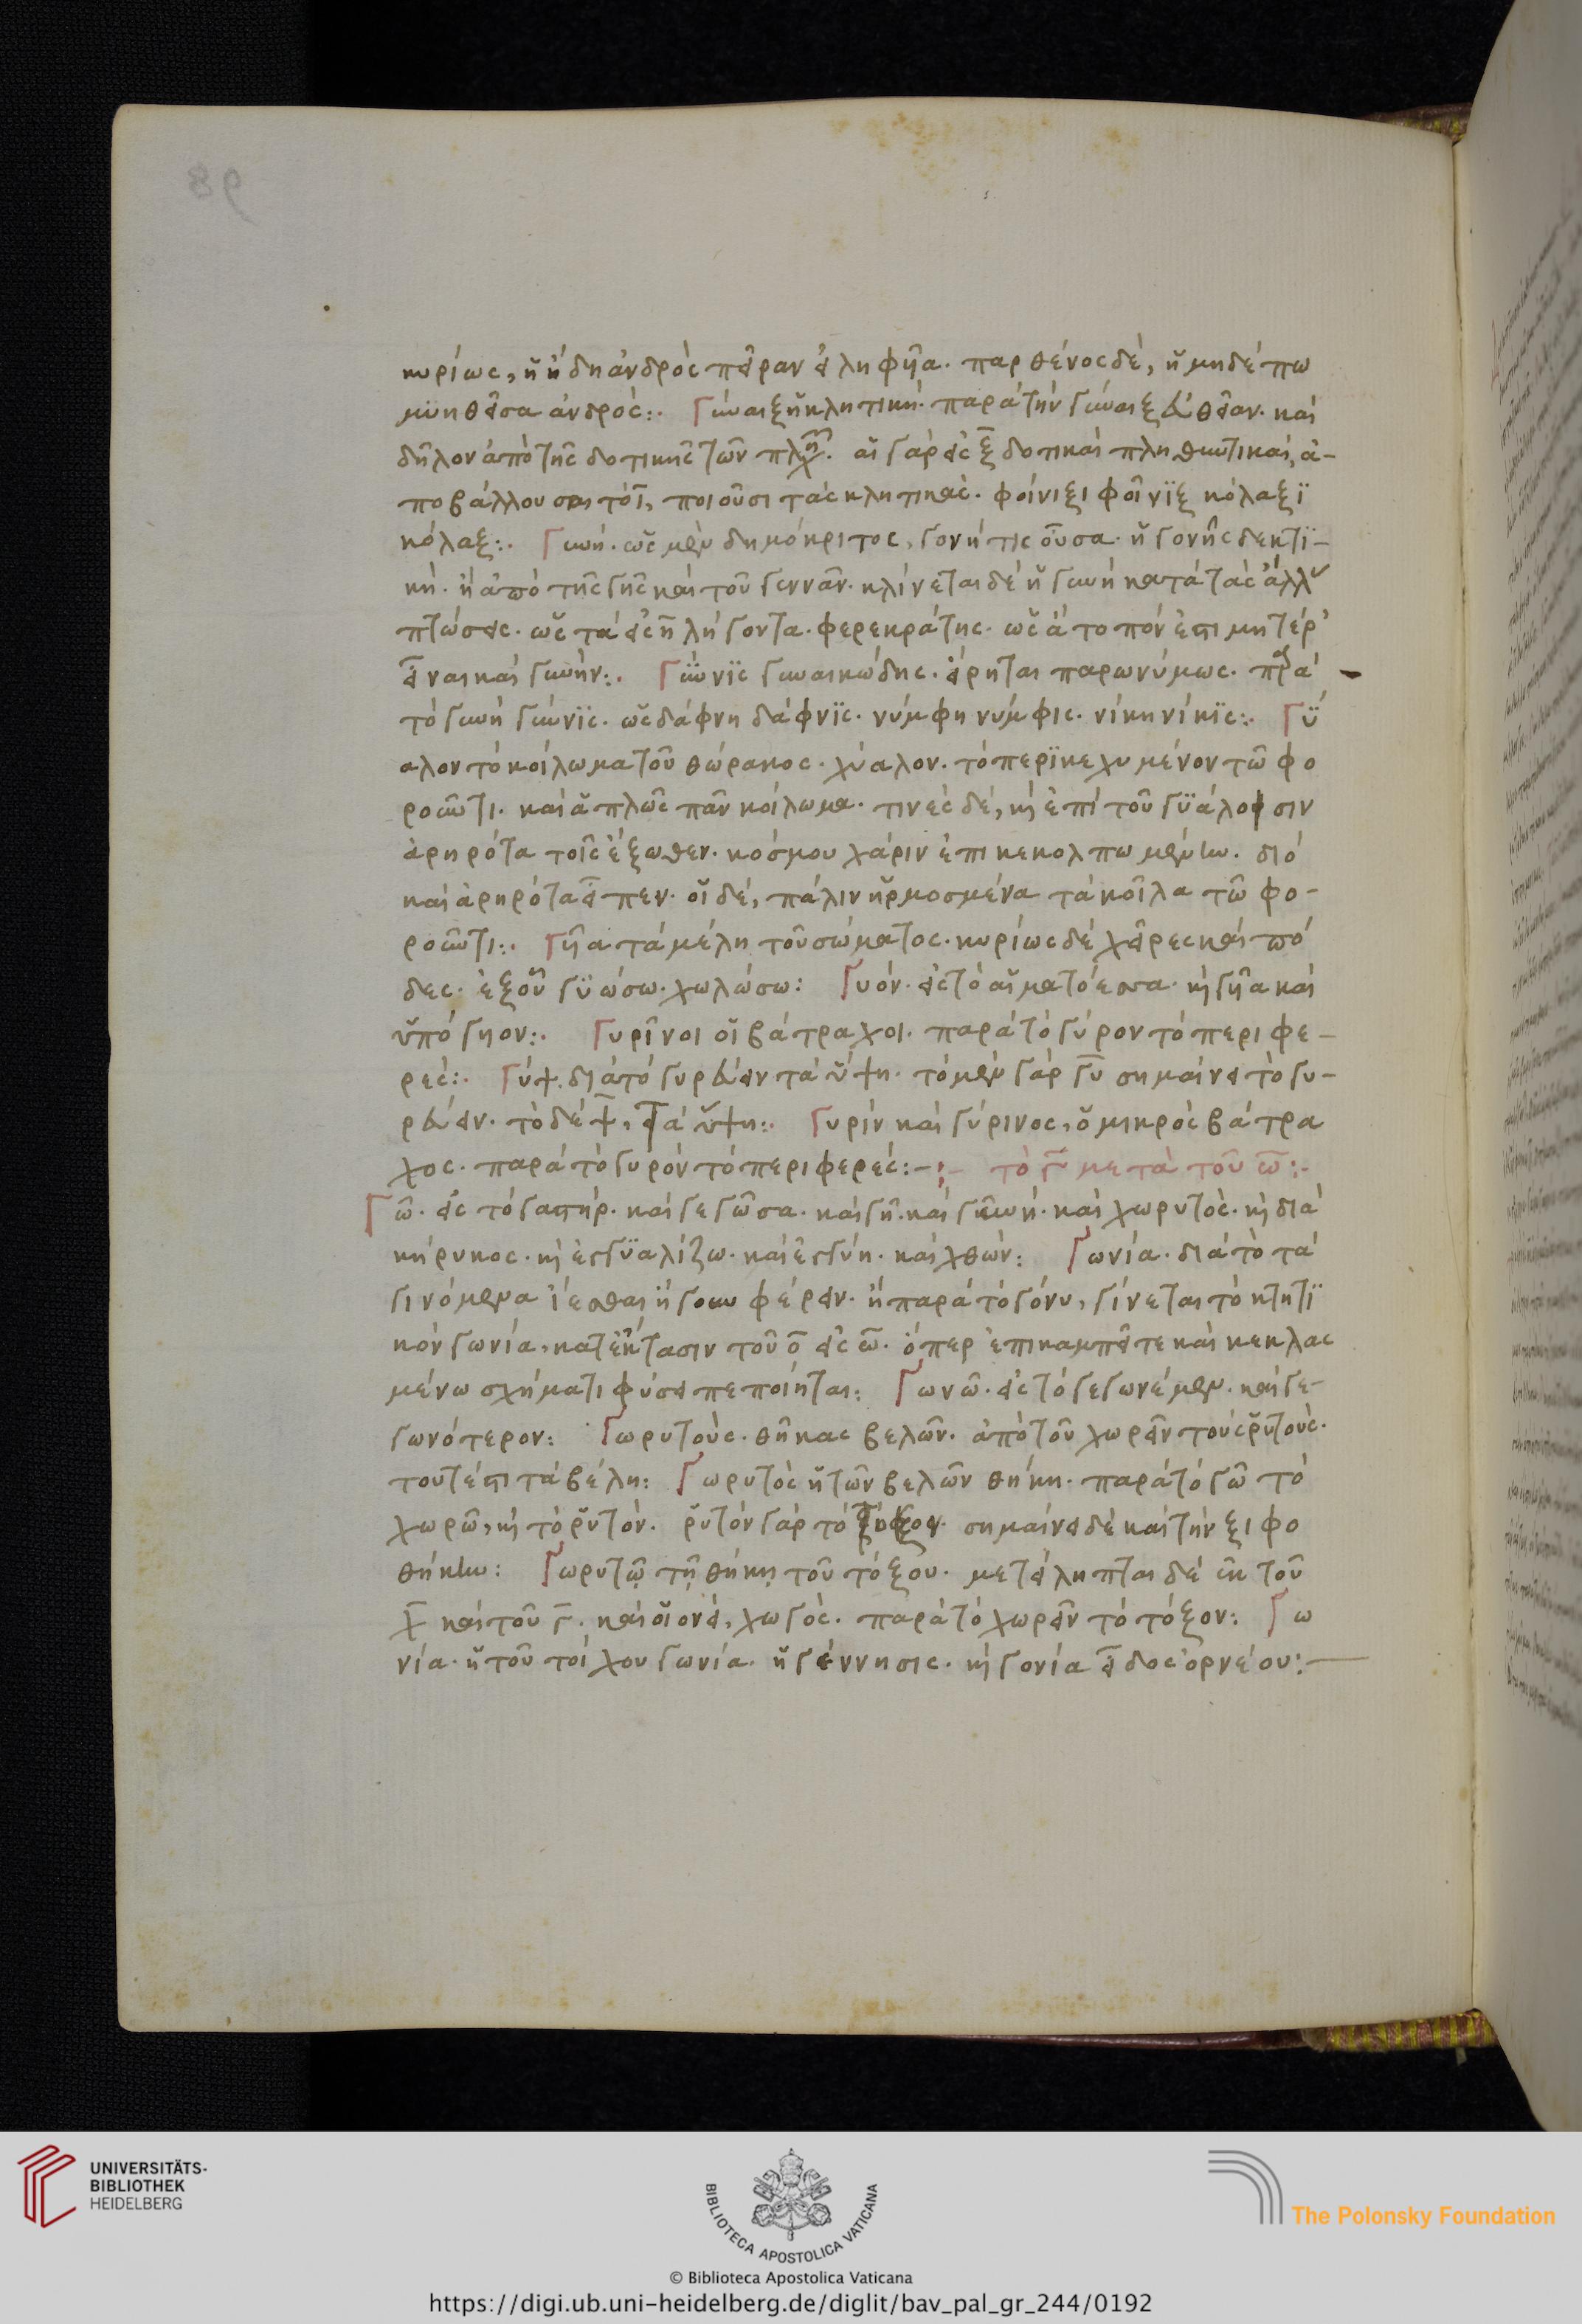 κυρίως, ἡ ἤδη ἀνδρὸς πεῖραν εἰληφῦα. παρθένος δὲ, ἡ μηδέπω
μυηθεῖσα ἀνδρός:. Γύναι ἡ κλητικὴ. παρὰ τὴν γύναιξ εὐθεῖαν. καὶ
δῆλον ἀπὸ τῆς δοτικῆς τῶν πλη. αἱ γὰρ εἰς ξ δοτικαὶ πληθυντικαὶ, ἀ-
ποβάλλουσαι τὸ ϊ, ποιοῦσι τὰς κλητικὰς. φοίνιξι φοῖνιξ κόλαξϊ
κόλαξ:. Γυνή. ὡς μὲν δημόκριτος, γονή τις οὖσα. ἡ γονῆς δεκτϊ-
κὴ. ἢ ἀπὸ τῆς γῆς καὶ τοῦ γεννᾶν. κλίνεται δὲ ἡ γυνὴ κατὰ τὰς ἄλλ
πτώσεις. ὡς τὰ εἰς η λήγοντα. φερεκράτης. ὡς ἄτοπόν ἐστι μητέρ'
εἶναι καὶ γυνήν:. Γύννϊς γυναικώδης. εἴρηται παρωνύμως. παρὰ
τὸ γυνή γύννϊς. ὡς δάφνη δάφνϊς. νύμφη νύμφις. νίκη νίκϊς:. Γύ
αλον τὸ κοίλωμα τοῦ θώρακος. χύαλον. τὸ περϊκεχυμένον τῶ φο
ροῦντι. καὶ ἁπλῶς πᾶν κοίλωμα. τινὲς δὲ, κὶ ἐπὶ τοῦ γϋάλοισιν
ἀρηρότα τοῖς ἔξωθεν. κόσμου χάριν ἐπικεκολπωμένων. διὸ
καὶ ἀρηρότα εἶπεν. οἱ δὲ, πάλιν ἡρμοσμένα τὰ κοῖλα τῶ φο-
ροῦντι:. Γῦα τὰ μέλη τοῦ σώματος. κυρίως δὲ χεῖρες καὶ πό
δες. ἐξ οὗ γϋώσω. χωλώσω: Γυόν. εἰς τὸ αἱματόεσσα. κὶ γῦα καὶ
ὑπόγυον:. Γυρῖνοι οἱ βάτραχοι. παρὰ τὸ γύρον τὸ περιφε-
ρές:. Γύψ. διὰ τὸ γυρεύειν τὰ ὕψη. τὸ μὲν γὰρ γυ σημαίνει τὸ γυ-
ρεύειν. τὸ δὲ ψ, τὰ ὕψη:. Γυρὶν καὶ γύρινος, ὁ μικρὸς βάτρα
χος. παρὰ τὸ γυρὸν τὸ περιφερές:- τὸ γ μετὰ τοῦ ω:-
Γῶ. εἰς τὸ γαστήρ. καὶ γεγῶσα. καὶ γῆ. καὶ γυνή. καὶ χωρυτὸς. κὶ διὰ
κήρυκος. κὶ ἐγγϋαλίζω. καὶ ἐγγύη. καὶ χθών: Γωνία. διὰ τὸ τὰ
γινόμενα ἵεσθαι ἤγουν φέρειν. ἢ παρὰ τὸ γόνυ, γίνεται τὸ κτητϊ
κὸν γωνία, κατ' ἔκτασιν τοῦ ο εἰς ω. ὅπερ ἐπικαμπεῖ τε καὶ κεκλας
μένω σχήματι φύσει πεποίηται: Γωνῶ. εἰς τὸ γεγωνέμεν. καὶ γε-
γωνότερον: Γωρυτοὺς. θῆκας βελῶν. ἀπὸ τοῦ χωρεῖν τοὺς ῥυτοὺς.
τουτέστι τὰ βέλη: Γωρυτὸς ἡ τῶν βελῶν θήκη. παρὰ τὸ γῶ τὸ
χωρῶ, κὶ τὸ ῥυτὸν. ῥυτὸν γὰρ τὸ σημαίνει δὲ καὶ τὴν ξιφο
θήκην: Γωρυτῷ τῇ θήκῃ τοῦ τόξου. μετείληπται δὲ ἐκ τοῦ
χ καὶ τοῦ γ. καὶ οἱονεὶ, χωγὸς. παρὰ τὸ χωρεῖν τὸ τόξον: Γω
νία. ἡ τοῦ τοίχου γωνία. ἡ γέννησις. κὶ γονία εἶδος ὀρνέου:
UNIVERSITÄTS-
BIBLIOTHEK
HEIDELBERG
BIBLIOTECA APOSTOLICA VATICANA
The Polonsky Foundation
© Biblioteca Apostolica Vaticana
https://digi.ub.uni-heidelberg.de/diglit/bav_pal_gr_244/0192